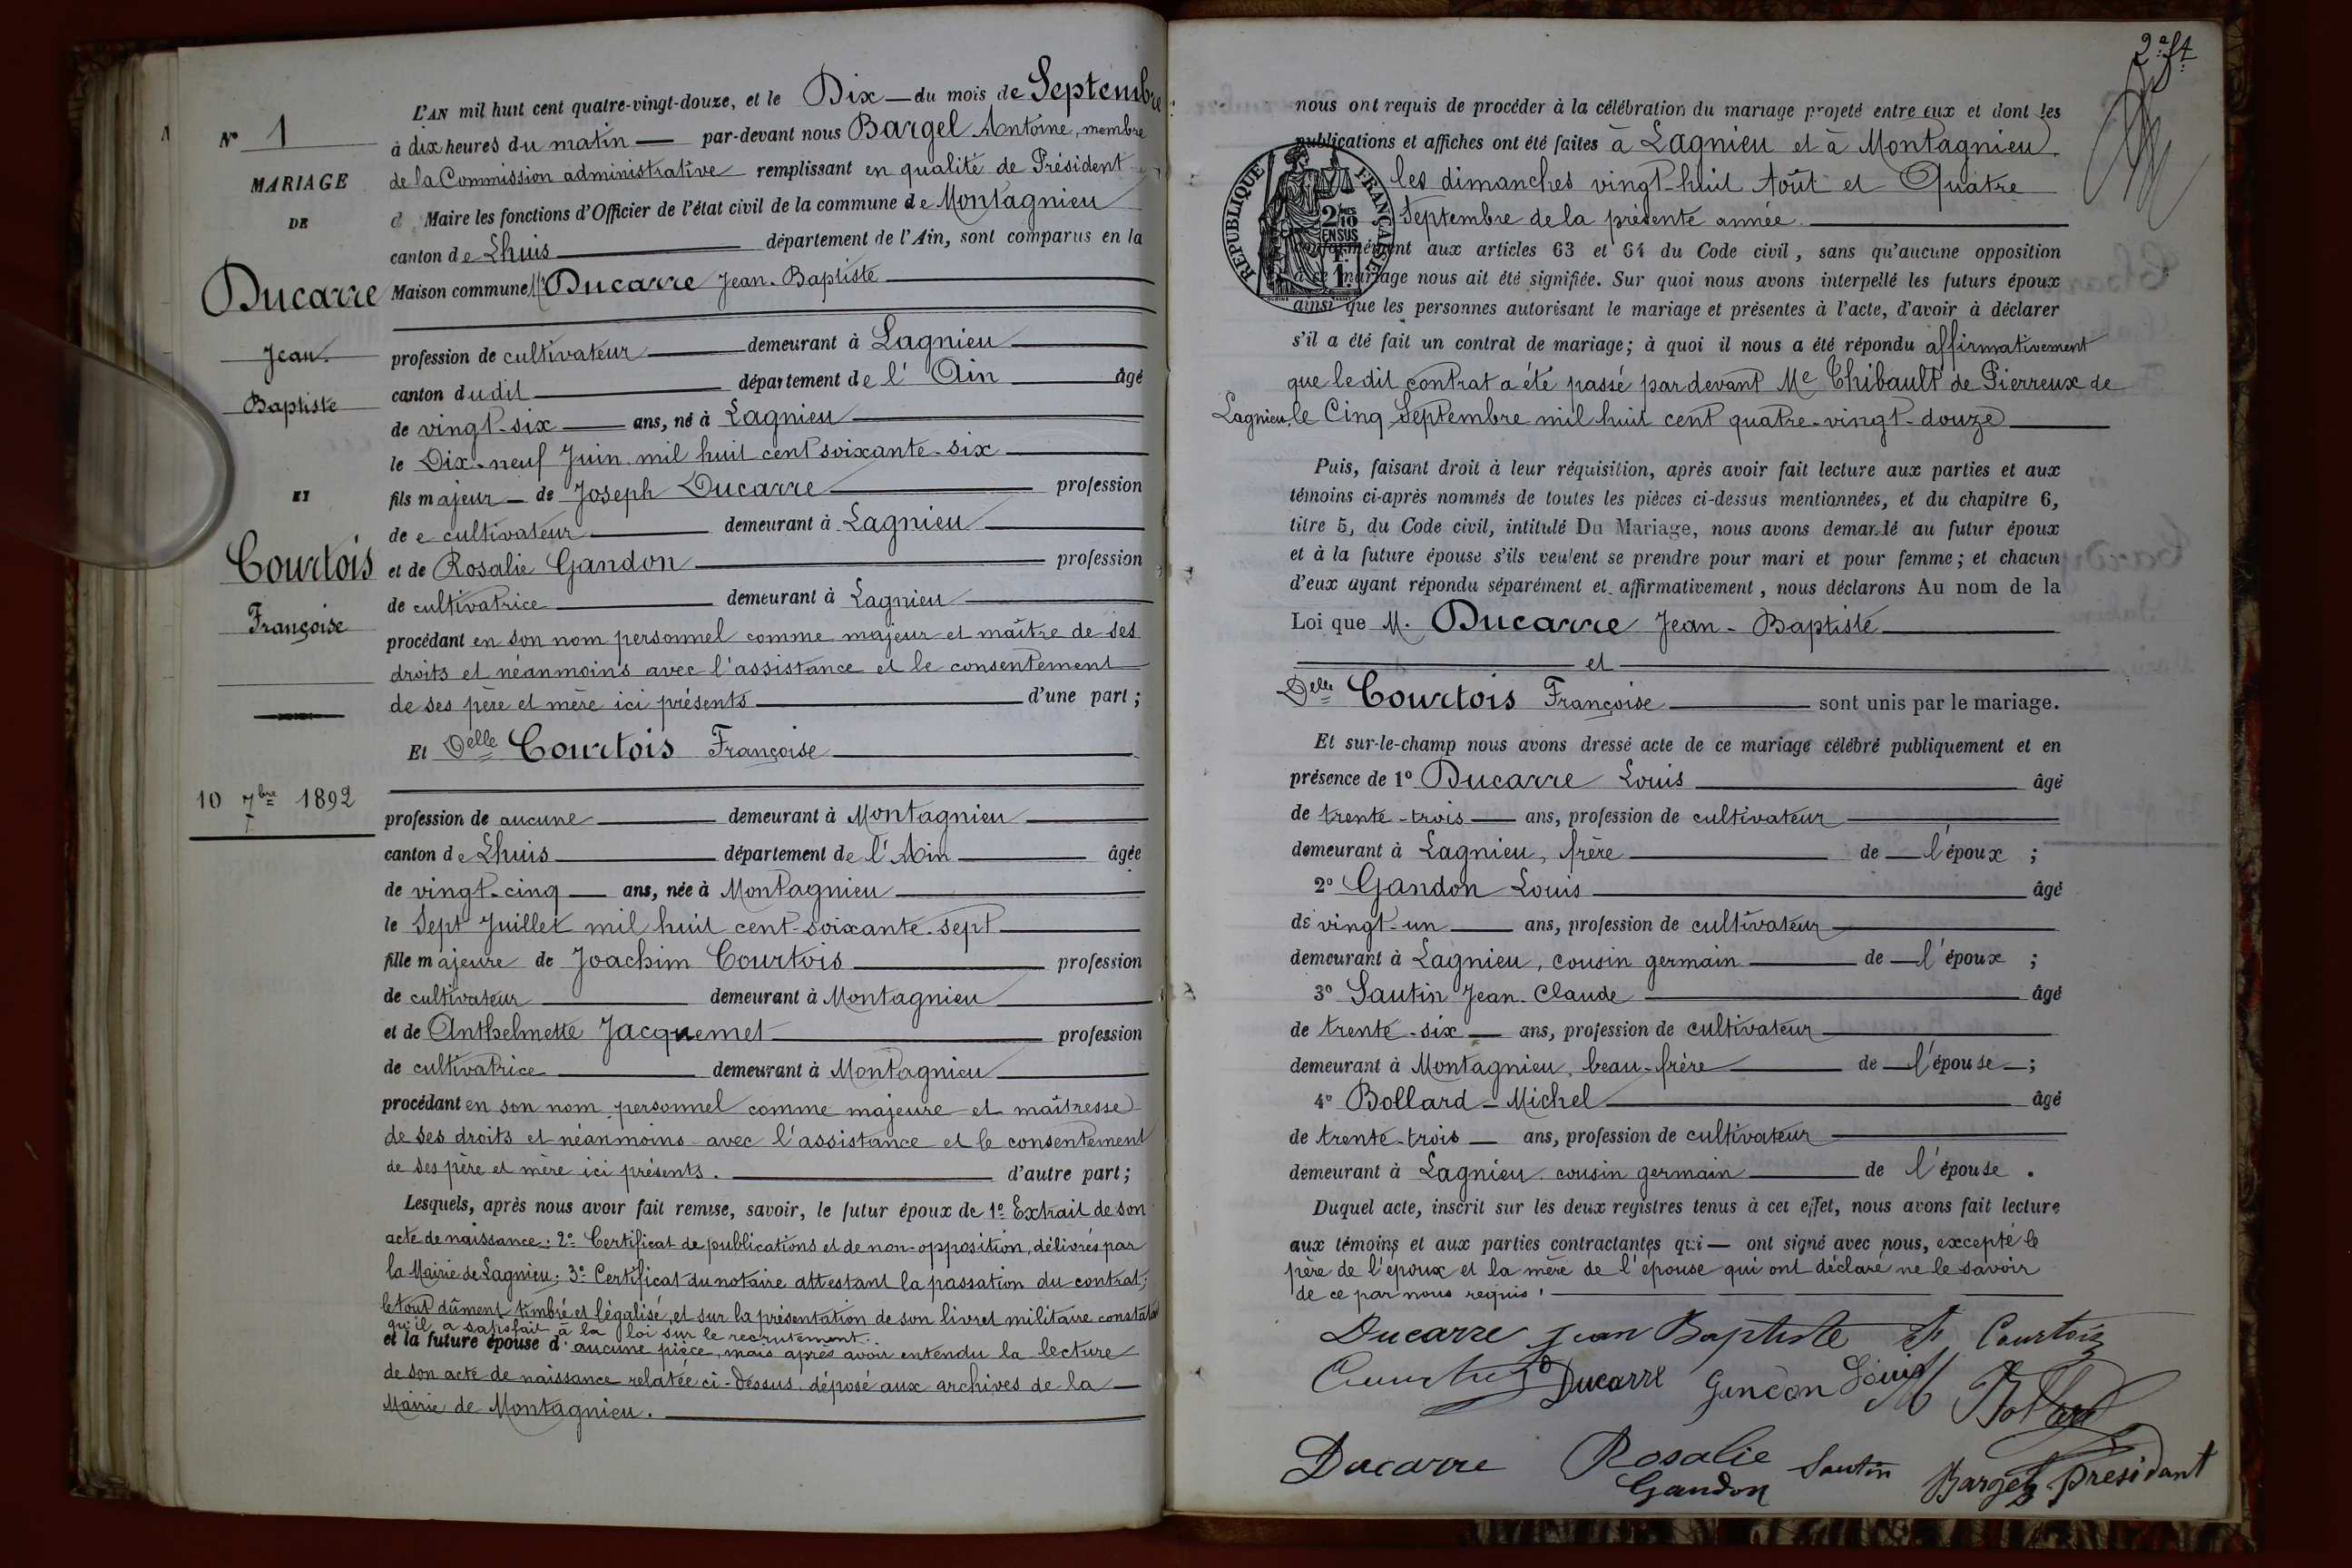 L'AN mil huit cent quatre-vingt-douze, et le Dix — du mois de Septembre
à dix heures du matin — par-devant nous Bargel Antoine, membre
de la Commission administrative remplissant en qualité de Président
d Maire les fonctions d'Officier de l'état civil de la commune de Montagnieu
canton de Lhuis département de l'Ain, sont comparus en la
Maison commune Mr Ducarre Jean-Baptiste
profession de cultivateur demeurant à Lagnieu
canton dudit département de l'Ain âgé
de vingt-six ans, né à Lagnieu
le Dix-neuf Juin mil huit cent soixante-six
fils majeur de Joseph Ducarre profession
de e cultivateur demeurant à Lagnieu
et de Rosalie Gandon profession
de cultivatrice demeurant à Lagnieu
procédant en son nom personnel comme majeur et maître de ses
droits et néanmoins avec l'assistance et le consentement
de ses père et mère ici présents d'une part;
Et Delle Courtois Françoise
profession de aucune demeurant à Montagnieu
canton de Lhuis département de l'Ain âgée
de vingt-cinq ans, née à Montagnieu
le Sept Juillet mil huit cent-soixante-sept
fille majeure de Joachim Courtois profession
de cultivateur demeurant à Montagnieu
et de Anthelmette Jacquemet profession
de cultivatrice demeurant à Montagnieu
procédant en son nom personnel comme majeure et maîtresse
de ses droits et néanmoins avec l'assistance et le consentement
de ses père et mère ici présents. d'autre part;
Lesquels, après nous avoir fait remise, savoir, le futur époux de 1º Extrait de son
acte de naissance; 2º Certificat de publications et de non-opposition, délivrés par
la Mairie de Lagnieu; 3º Certificat du notaire attestant la passation du contrat;
le tout dûment timbré et légalisé, et sur la présentation de son livret militaire constatant
qu'il a satisfait à la loi sur le recrutement.
et la future épouse d'aucune pièce, mais après avoir entendu la lecture
de son acte de naissance relatée ci-dessus déposé aux archives de la
Mairie de Montagnieu.
Nº 1
MARIAGE
DE
Ducarre
Jean
Baptiste
ET
Courtois
Françoise
10 7bre 1892
2e ft
nous ont requis de procéder à la célébration du mariage projeté entre eux et dont les
publications et affiches ont été faites à Lagnieu et à Montagnieu
les dimanches vingt-huit Août et Quatre
Septembre de la présente année.
conformément aux articles 63 et 64 du Code civil, sans qu'aucune opposition
à ce mariage nous ait été signifiée. Sur quoi nous avons interpellé les futurs époux
ainsi que les personnes autorisant le mariage et présentes à l'acte, d'avoir à déclarer
s'il a été fait un contrat de mariage; à quoi il nous a été répondu affirmativement
que le dit contrat a été passé par devant Me Thibault de Pierreux de
Lagnieu, le Cinq Septembre mil huit cent quatre-vingt-douze
RÉPUBLIQUE FRANÇAISE
Puis, faisant droit à leur réquisition, après avoir fait lecture aux parties et aux
témoins ci-après nommés de toutes les pièces ci-dessus mentionnées, et du chapitre 6,
titre 5, du Code civil, intitulé Du Mariage, nous avons demandé au futur époux
et à la future épouse s'ils veulent se prendre pour mari et pour femme; et chacun
d'eux ayant répondu séparément et affirmativement, nous déclarons Au nom de la
Loi que M. Ducarre Jean-Baptiste
et
Delle Courtois Françoise sont unis par le mariage.
Et sur-le-champ nous avons dressé acte de ce mariage célébré publiquement et en
présence de 1º Ducarre Louis âgé
de trente-trois ans, profession de cultivateur
demeurant à Lagnieu, frère de l'époux;
2º Gandon Louis âgé
de vingt-un ans, profession de cultivateur
demeurant à Lagnieu, cousin germain de l'époux;
3º Sautin Jean-Claude âgé
de trente-six ans, profession de cultivateur
demeurant à Montagnieu, beau-frère de l'épouse;
4º Bollard-Michel âgé
de trente-trois ans, profession de cultivateur
demeurant à Lagnieu cousin germain de l'épouse.
Duquel acte, inscrit sur les deux registres tenus à cet effet, nous avons fait lecture
aux témoins et aux parties contractantes qui — ont signé avec nous, excepté le
père de l'époux et la mère de l'épouse qui ont déclaré ne le savoir
de ce par nous requis.
Ducarre Jean Baptiste Courtois
Ducarre Gandon Louis M Bollard
Ducarre Rosalie Gandon Sautin Bargel président